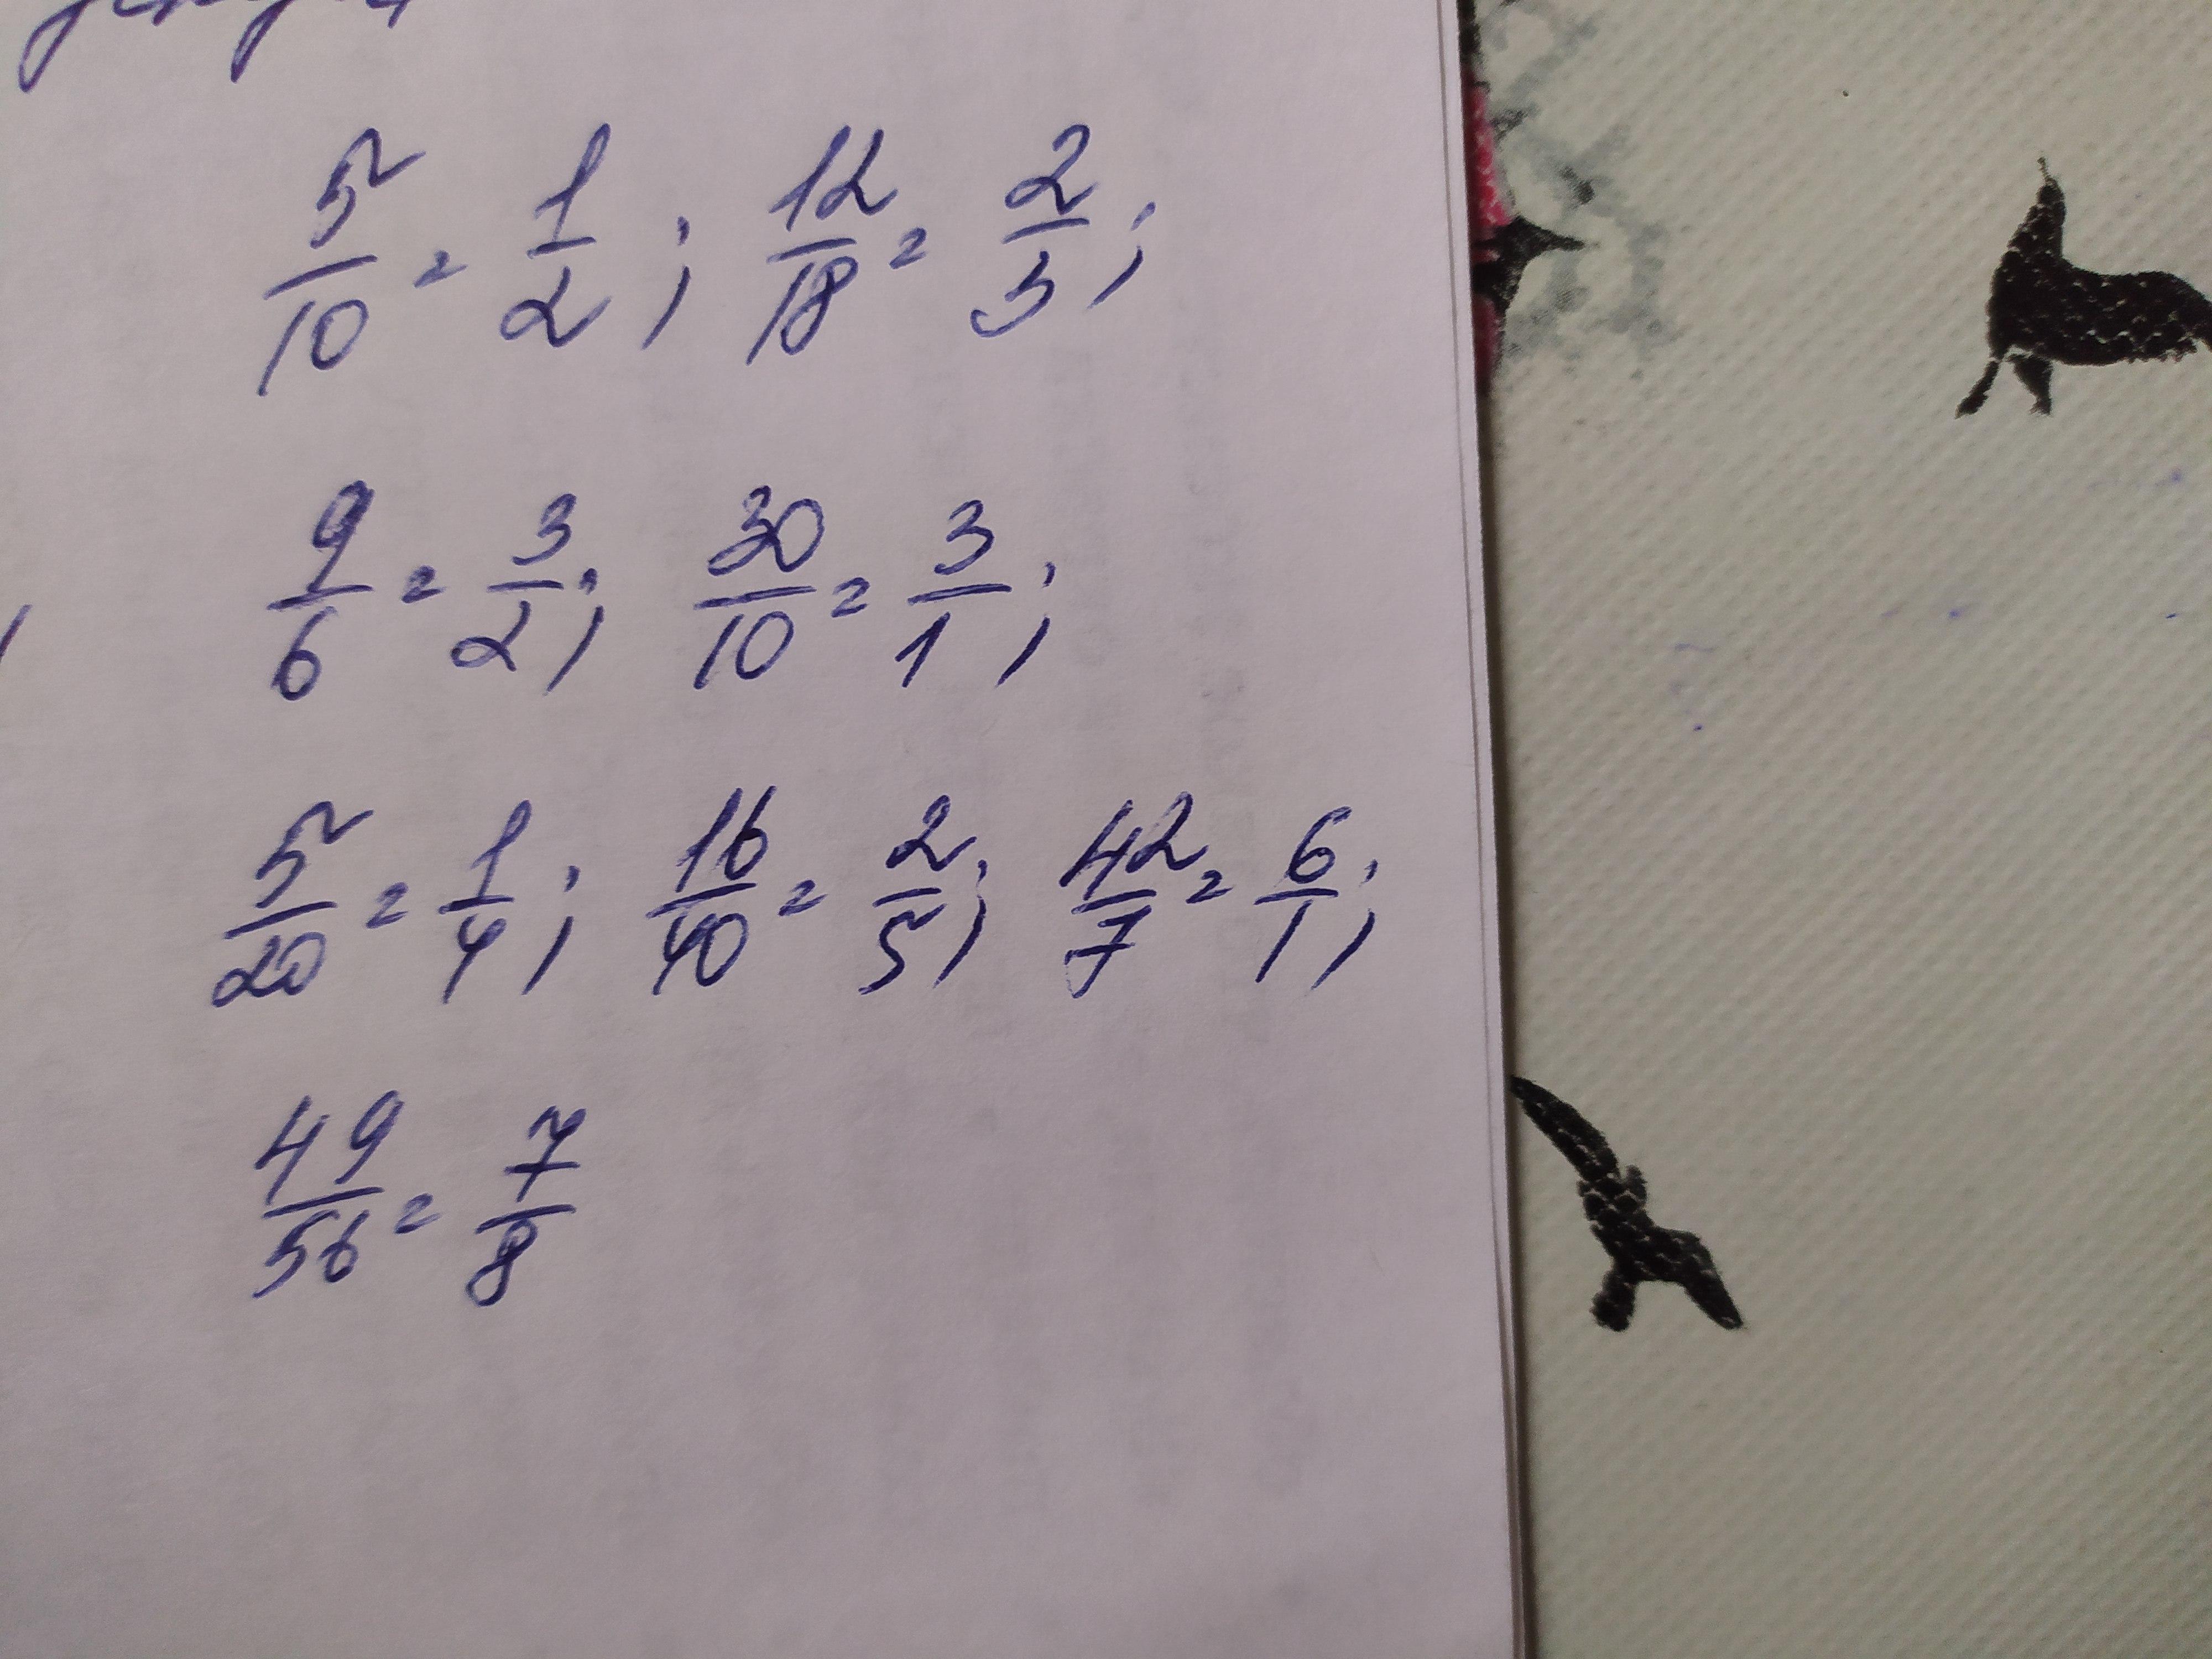 5/10 = 1/2; 12/18 = 2/3;
9/6 = 3/2; 30/10 = 3/1;
5/20 = 1/4; 16/40 = 2/5; 42/7 = 6/1;
49/56 = 7/8